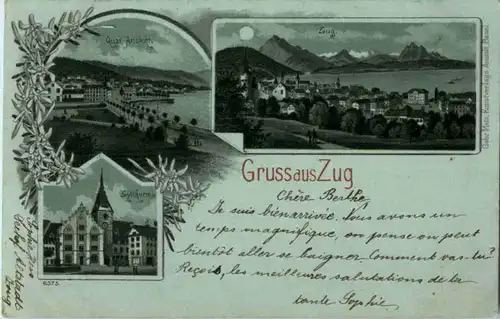 Quai, Artherstr.
Zug.
Gebr. Metz, Kunstverlags-Anstalt, Basel.
Zytthurm
6373.
Gruss aus Zug
Chère Berthe,
Je suis bien arrivée. Nous avons un
temps magnifique, on pense on peut
bientôt aller se baigner. Comment vas-tu?
Reçois, les meilleures salutations de ta
tante Sophie.
Altstadt
Zoug